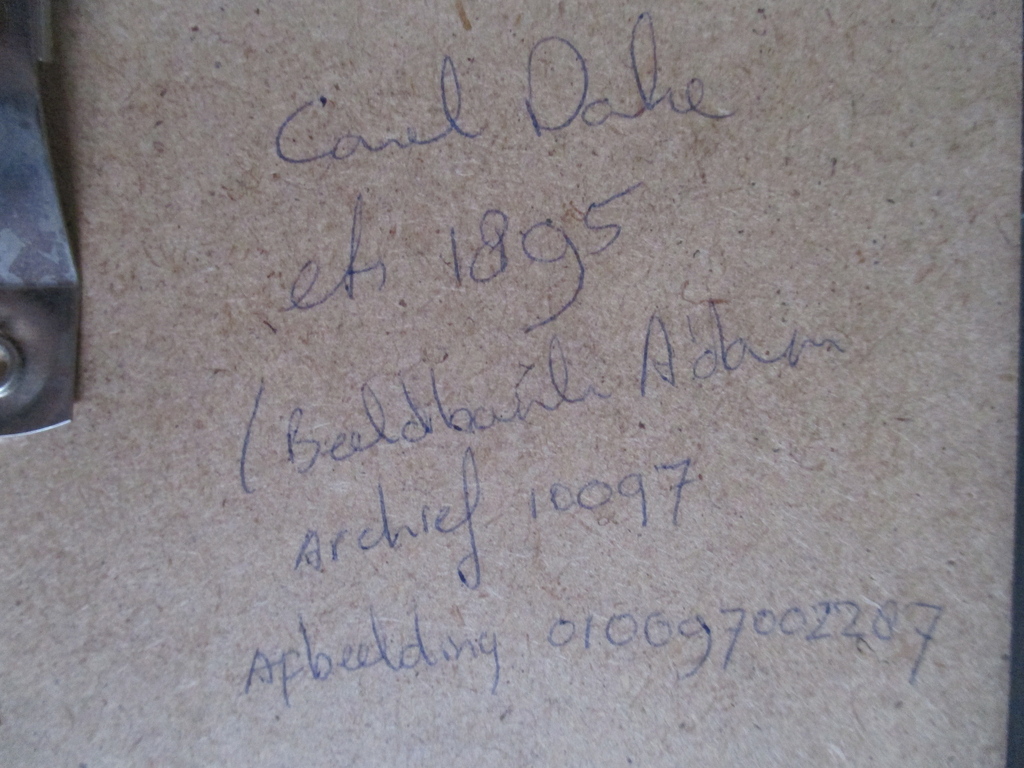 Carel Dake
ets 1895
(Beeldbank Adam
Archief 10097
Afbeelding 010097002287